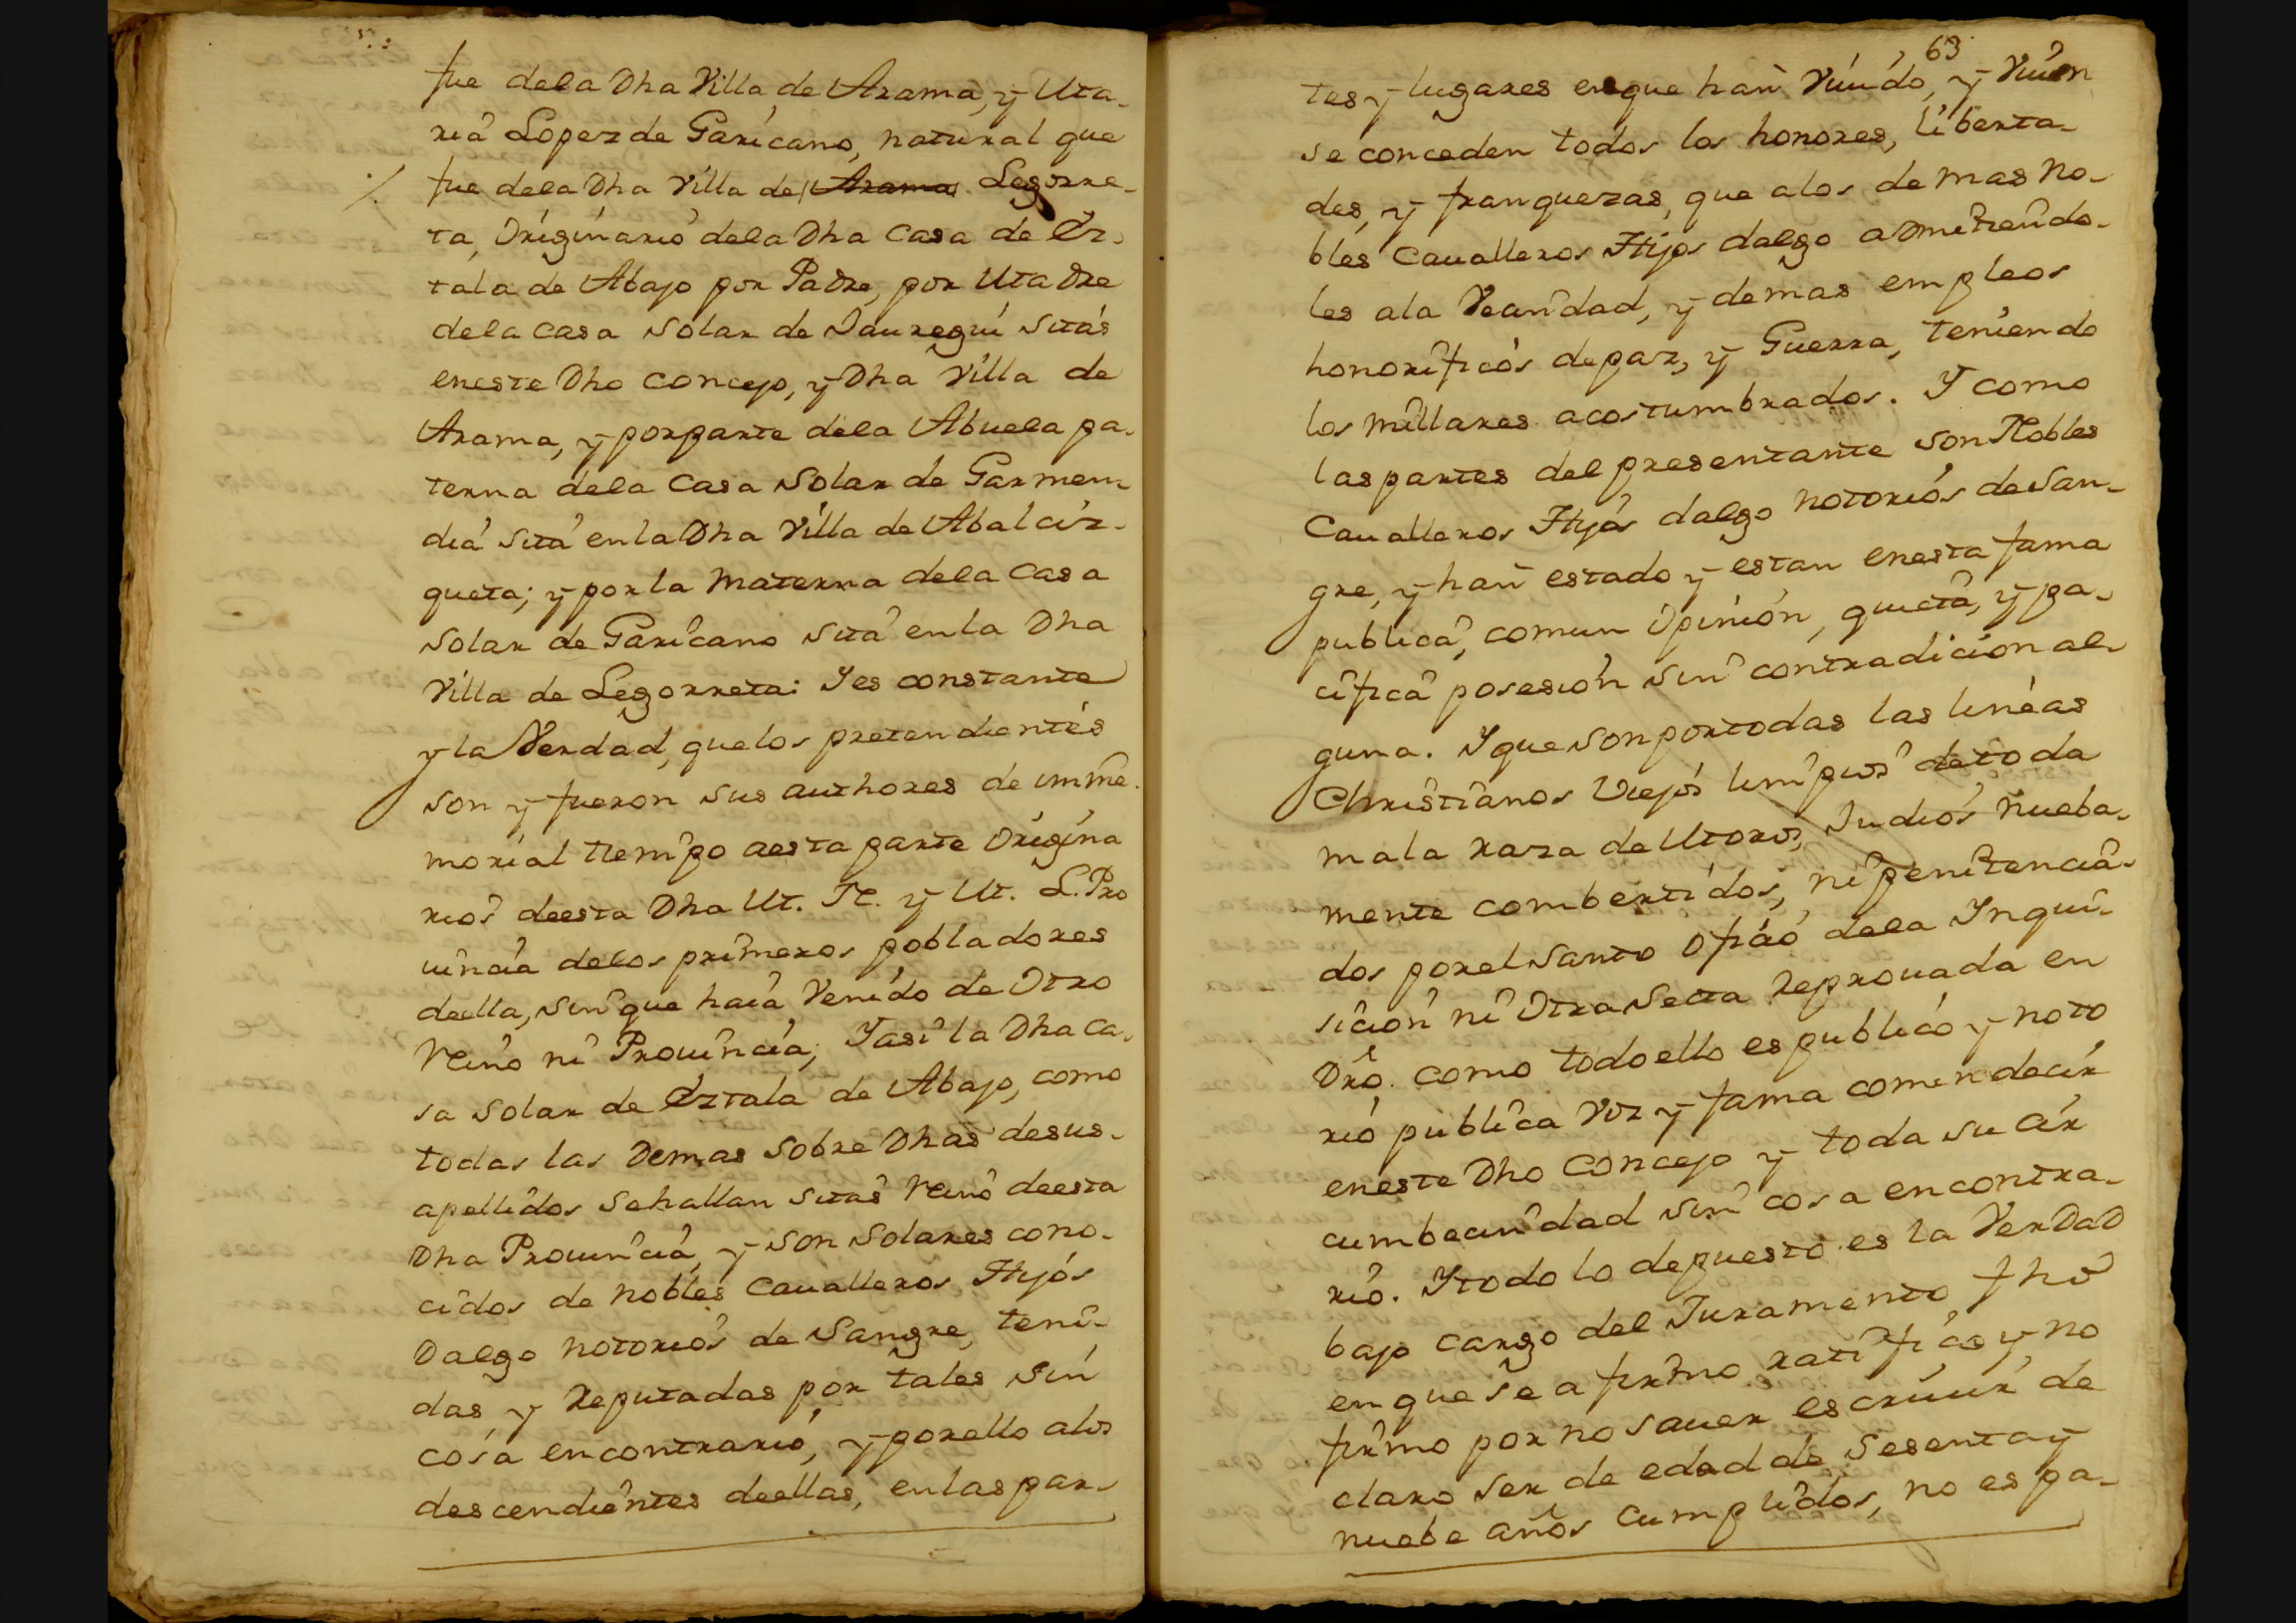 fue dela Dha Villa de Arama, y Ma-
ria Lopez de Garicano, natural que
fue dela Dha Villa de Arama Legorre-
ta, Originario dela Dha Casa de Ez-
tala de Abajo por Padre, por Madre
dela casa solar de Jauregui sitas
eneste Dho Concejo, y Dha Villa de
Arama, y porparte dela Abuela pa-
terna dela Casa Solar de Garmen-
dia sita enla Dha Villa de Abalciz-
queta; y porla Materna dela Casa
Solar de Garicano sita enla Dha
Villa de Legorreta: Yes constante
y la Verdad, quelos pretendientes
son y fueron sus authores de imme-
morial tiempo aesta parte Origina
rios deesta Dha M. N. y M. L. Pro
uincia delos primeros pobladores
deella, sin que haia Venido de Otro
Reino ni Prouincia; Yasi la Dha Ca-
sa Solar de Eztala de Abajo, como
todas las Demas sobre Dhas desus-
apellidos sehallan sitas Reino deesta
Dha Prouincia, y son Solares cono-
cidos de nobles Caualleros Hijos
Dalgo notorios de Sangre, teni-
das y Reputadas por tales sin
cosa encontrario, y porello alos
descendientes deellas, enlas par-
63
tes y lugares enque han Viuido, y Viuen
se conceden todos los honores, liberta-
des, y franquezas, que alos demas No-
bles Caualleros Hijos dalgo admitiendo-
les ala Vecindad, y demas empleos
honorificos depaz, y Guerra, teniendo
los millares acostumbrados. Y como
las partes del presentante son Nobles
Caualleros Hijos dalgo notorios deSan-
gre, y han estado y estan enesta fama
publica, comun Opinion, quieta, y pa-
cifica posesion sin contradicion al-
guna. Yque son portodas las lineas
Christianos Viejos limpios detoda
mala raza de Moros, Judios nueba-
mente combertidos, ni penitencia-
dos porel Santo Ofiio dela Inqui-
sicion ni Otra Secta Reprouada en
Dro. como todoello es publico y noto
rio publica Voz y fama comun decir
eneste Dho Concejo y toda su cir
cumbecindad sin cosa encontra-
rio. Ytodo lo depuesto es la VerDaD
bajo cargo del Juramento fho
en que se afirmo ratifico y no
firmo por no sauer escriuir de
claro ser de edad de Sesenta y
nuebe años Cumplidos, no es pa-